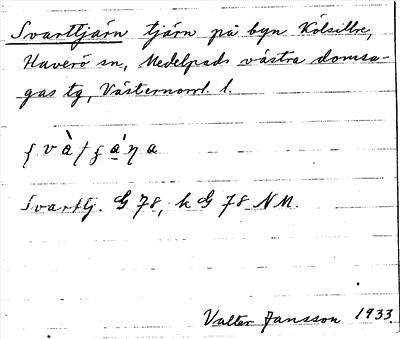 Svarttjärn tjärn på byn Kölsillre,
Haverö sn, Medelpads västra domsa-
gas tg, Västernorrl. l.
Svarttj. G 78, k G 78 NM.
Valter Jansson 1933.